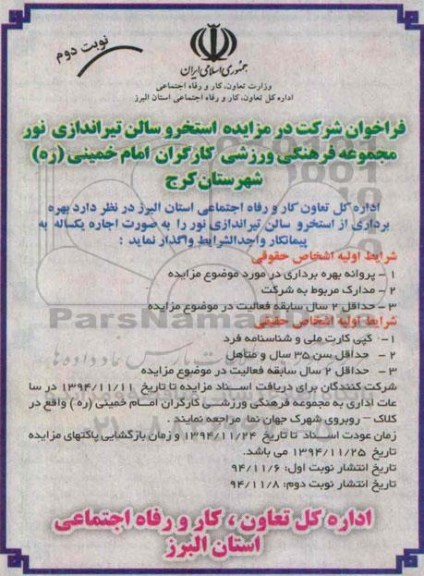 نوبت دوم
جمهوری اسلامی ایران
وزارت تعاون، کار و رفاه اجتماعی
اداره کل تعاون، کار و رفاه اجتماعی استان البرز
فراخوان شرکت در مزایده استخرو سالن تیراندازی نور
مجموعه فرهنگی ورزشی کارگران امام خمینی (ره)
شهرستان کرج
اداره کل تعاون کار و رفاه اجتماعی استان البرز در نظر دارد بهره
برداری از استخرو سالن تیراندازی نور را به صورت اجاره یکساله به
پیمانکار واجدالشرایط واگذار نماید :
شرایط اولیه اشخاص حقوقی
۱ - پروانه بهره برداری در مورد موضوع مزایده
۲ - مدارک مربوط به شرکت
۳ - حداقل ۲ سال سابقه فعالیت در موضوع مزایده
شرایط اولیه اشخاص حقیقی
ParsNamadData
۱ - کپی کارت ملی و شناسنامه فرد
۲ - حداقل سن ۳۵ سال و متأهل
۳ - حداقل ۲ سال سابقه فعالیت در موضوع مزایده
شرکت کنندگان برای دریافت اسـناد مزایده تا تاریخ ۱۳۹۴/۱۱/۱۱ در سا
عات اداری به مجموعه فرهنگی ورزشـی کارگران امـام خمینی (ره) واقع در
کلاک - روبروی شهرک جهان نما مراجعه نمایند.
زمان عودت اسـناد تا تاریخ ۱۳۹۴/۱۱/۲۴ و زمان بازگشایی پاکتهای مزایده
تاریخ ۱۳۹۴/۱۱/۲۵ می باشد.
تاریخ انتشار نوبت اول: ۹۴/۱۱/۶
تاریخ انتشار نوبت دوم: ۹۴/۱۱/۸
اداره کل تعاون ، کار و رفاه اجتماعی
استان البرز